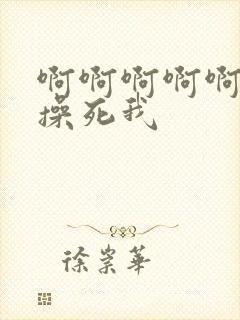 啊啊啊啊啊
操死我
徐崇华